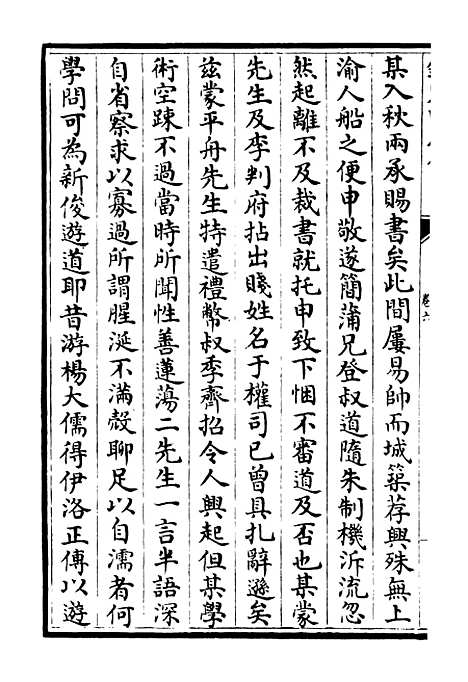 某入秋兩承賜書矣此間屢易帥而城築荐興殊無上
渝人船之便申敬遂簡蒲兄登叔道隨朱制機泝流忽
然起離不及裁書就托申致下悃不審道及否也某蒙
先生及李判府拈出賤姓名于權司已曾具扎辭遜矣
兹蒙平舟先生特遣禮幣叔季齊招令人興起但某學
術空踈不過當時所聞性善蓮蕩二先生一言半語深
自省察求以寡過所謂腥涎不滿殻聊足以自濡者何
學問可為新俊遊道耶昔游楊大儒得伊洛正傳以遊